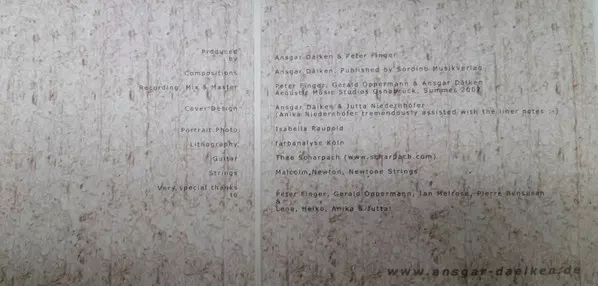 Produced by
Ansgar Dälken & Peter Finger
Compositions
Ansgar Dälken, Published by Sordino Musikverlag
Recording, Mix & Master
Peter Finger, Gerald Oppermann & Ansgar Dälken
Acoustic Music Studios Osnabrück, Summer
Cover Design
Ansgar Dälken & Jutta Niedernhöfer
(Anika Niedernhöfer tremendously assisted with the liner notes :-)
Portrait Photo
Isabella Raupold
Lithography
farbanalyse Köln
Guitar
Theo Scharpach (www.scharpach.com)
Strings
Malcolm Newton, Newtone Strings
Very special thanks
to
Peter Finger, Gerald Oppermann, Ian Melrose, Pierre Bensusan
&
Lena, Heiko, Anika & Jutta!
www.ansgar-daelken.de